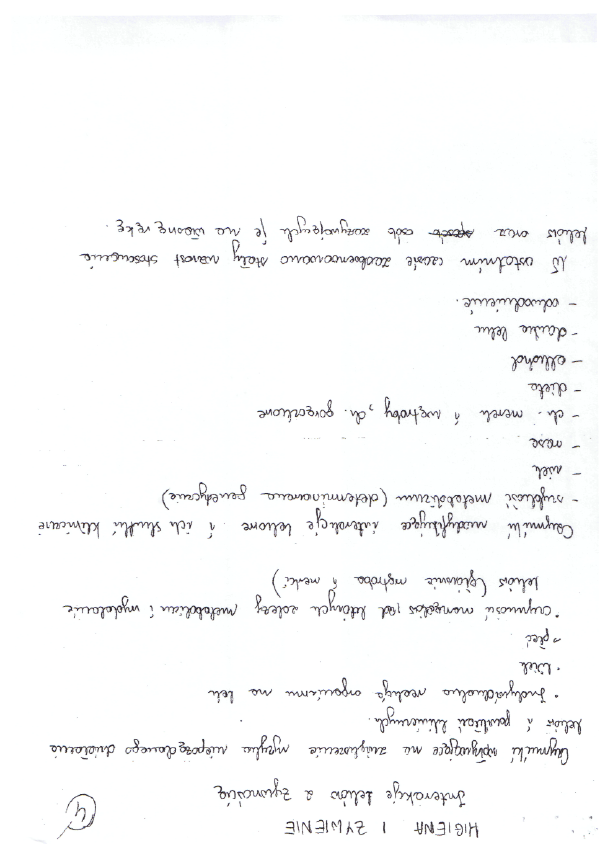 HIGIENA I ŻYWIENIE
4
Interakcje leków z żywnością
Czynniki wpływające na zwiększenie ryzyka niepożądanego działania
leków i powikłań klinicznych.
• Indywidualna reakcja organizmu na lek
• Wiek
• płeć
• czynność narządów, od których zależy metabolizm i wydalanie
leków (głównie wątroba i nerki)
Czynniki modyfikujące interakcje lekowe i ich skutki kliniczne
- szybkość metabolizmu (determinowana genetycznie)
- wiek
- rasa
- ch. nerek i wątroby, ch. gorączkowe
- dieta
- alkohol
- dawka leku
- odwodnienie.
W ostatnim czasie zaobserwowano stały wzrost stosowania
leków oraz osób zażywających je na własną rękę.